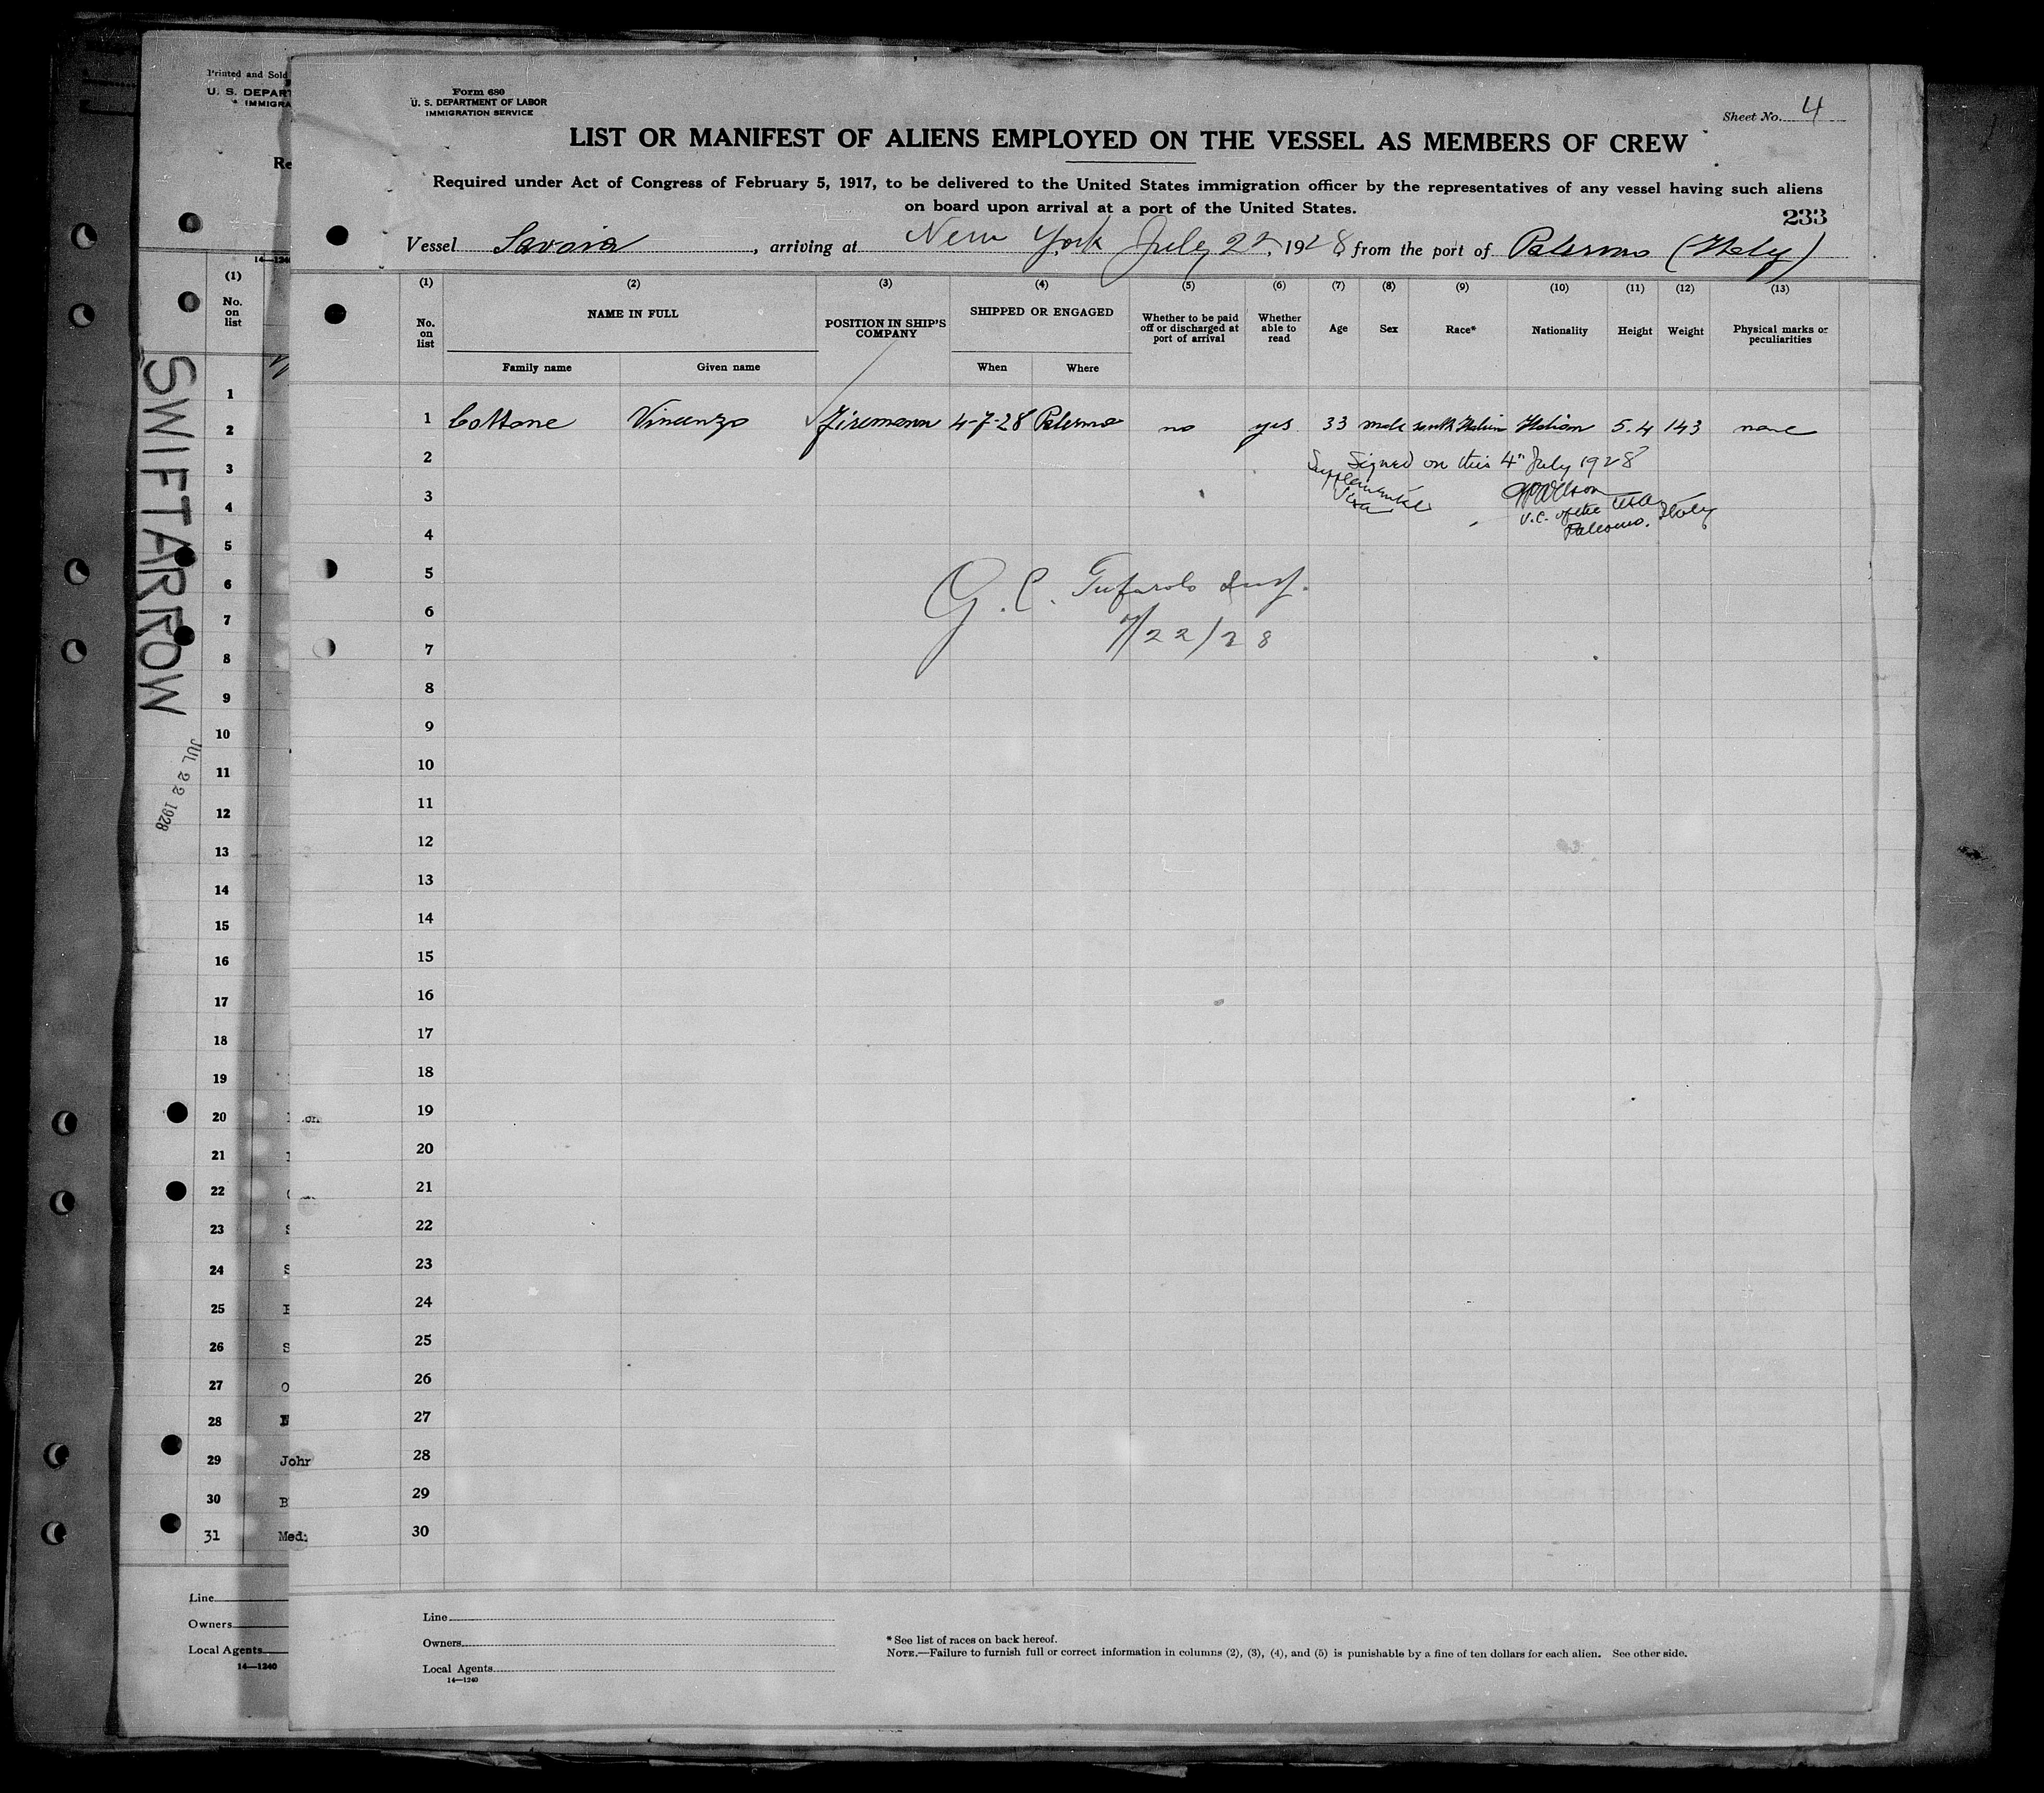 Printed and Sold
U. S. DEPART
IMMIGRA
Re
14—1240
(1)
No.
on
list
1
2
3
4
5
6
7
8
9
10
11
12
13
14
15
16
17
18
19
20
21
22
23
24
25
26
27
28
29 John
30 B
31 Med.
Line
Owners
Local Agents
14—1240
SWIFTARROW
JUL 22 1928
Form 680
U. S. DEPARTMENT OF LABOR
IMMIGRATION SERVICE
Sheet No. 4
LIST OR MANIFEST OF ALIENS EMPLOYED ON THE VESSEL AS MEMBERS OF CREW
Required under Act of Congress of February 5, 1917, to be delivered to the United States immigration officer by the representatives of any vessel having such aliens
on board upon arrival at a port of the United States.
233
Vessel Savoia, arriving at New York July 22, 1928, from the port of Palermo (Italy)
(1) (2) (3) (4) (5) (6) (7) (8) (9) (10) (11) (12) (13)
No. on list NAME IN FULL Family name Given name POSITION IN SHIP'S COMPANY SHIPPED OR ENGAGED When Where Whether to be paid off or discharged at port of arrival Whether able to read Age Sex Race* Nationality Height Weight Physical marks or peculiarities
1 Cottone Vincenzo Firemann 4-7-28 Palermo no yes 33 male south Italian Italian 5.4 143 none
2 Signed on this 4" July 1928
Supplementke
Visa
3
V.C. of the USA
Palermo. Italy
4
5
G. C. Tufarolo Insp.
6
7/22/28
7
8
9
10
11
12
13
14
15
16
17
18
19
20
21
22
23
24
25
26
27
28
29
30
Line
Owners
Local Agents
14—1240
* See list of races on back hereof.
NOTE.—Failure to furnish full or correct information in columns (2), (3), (4), and (5) is punishable by a fine of ten dollars for each alien. See other side.